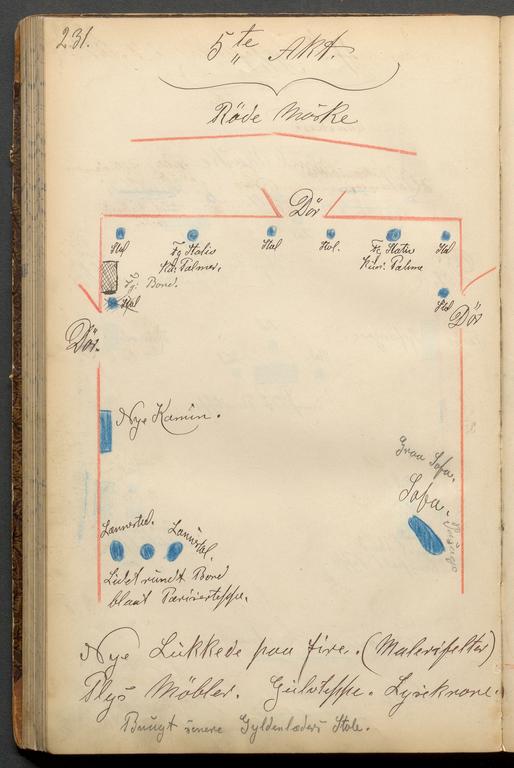 231.
5te Akt.
Røde Mörke
Dör
Stol
Fg Stativ
Kün: Palmer.
Stol
Stol.
Fg Stativ
Kün: Palme
Stol
Fg: Bord.
Stol
Stol
Dör
Dör.
Nye Kamin.
Graa Sofa.
Sofa.
Lænnestol.
Lænnestol.
Lidet rundt Bord
blaat Pariserteppe.
Nye Lükkede paa fire. (Malerifelter)
Plys Möbler. Gulvteppe. Lysekrone.
Brugt senere Gyldenlæders Stole.